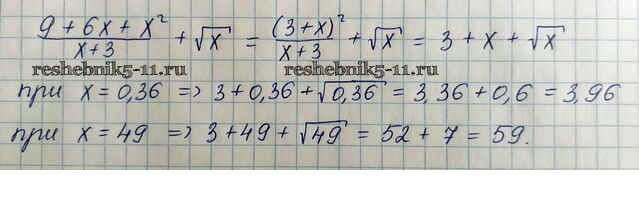 (9 + 6x + x²)/(x+3) + √x = (3+x)²/(x+3) + √x = 3 + x + √x
reshebnik5-11.ru reshebnik5-11.ru
при x = 0,36 => 3 + 0,36 + √0,36 = 3,36 + 0,6 = 3,96
при x = 49 => 3 + 49 + √49 = 52 + 7 = 59.